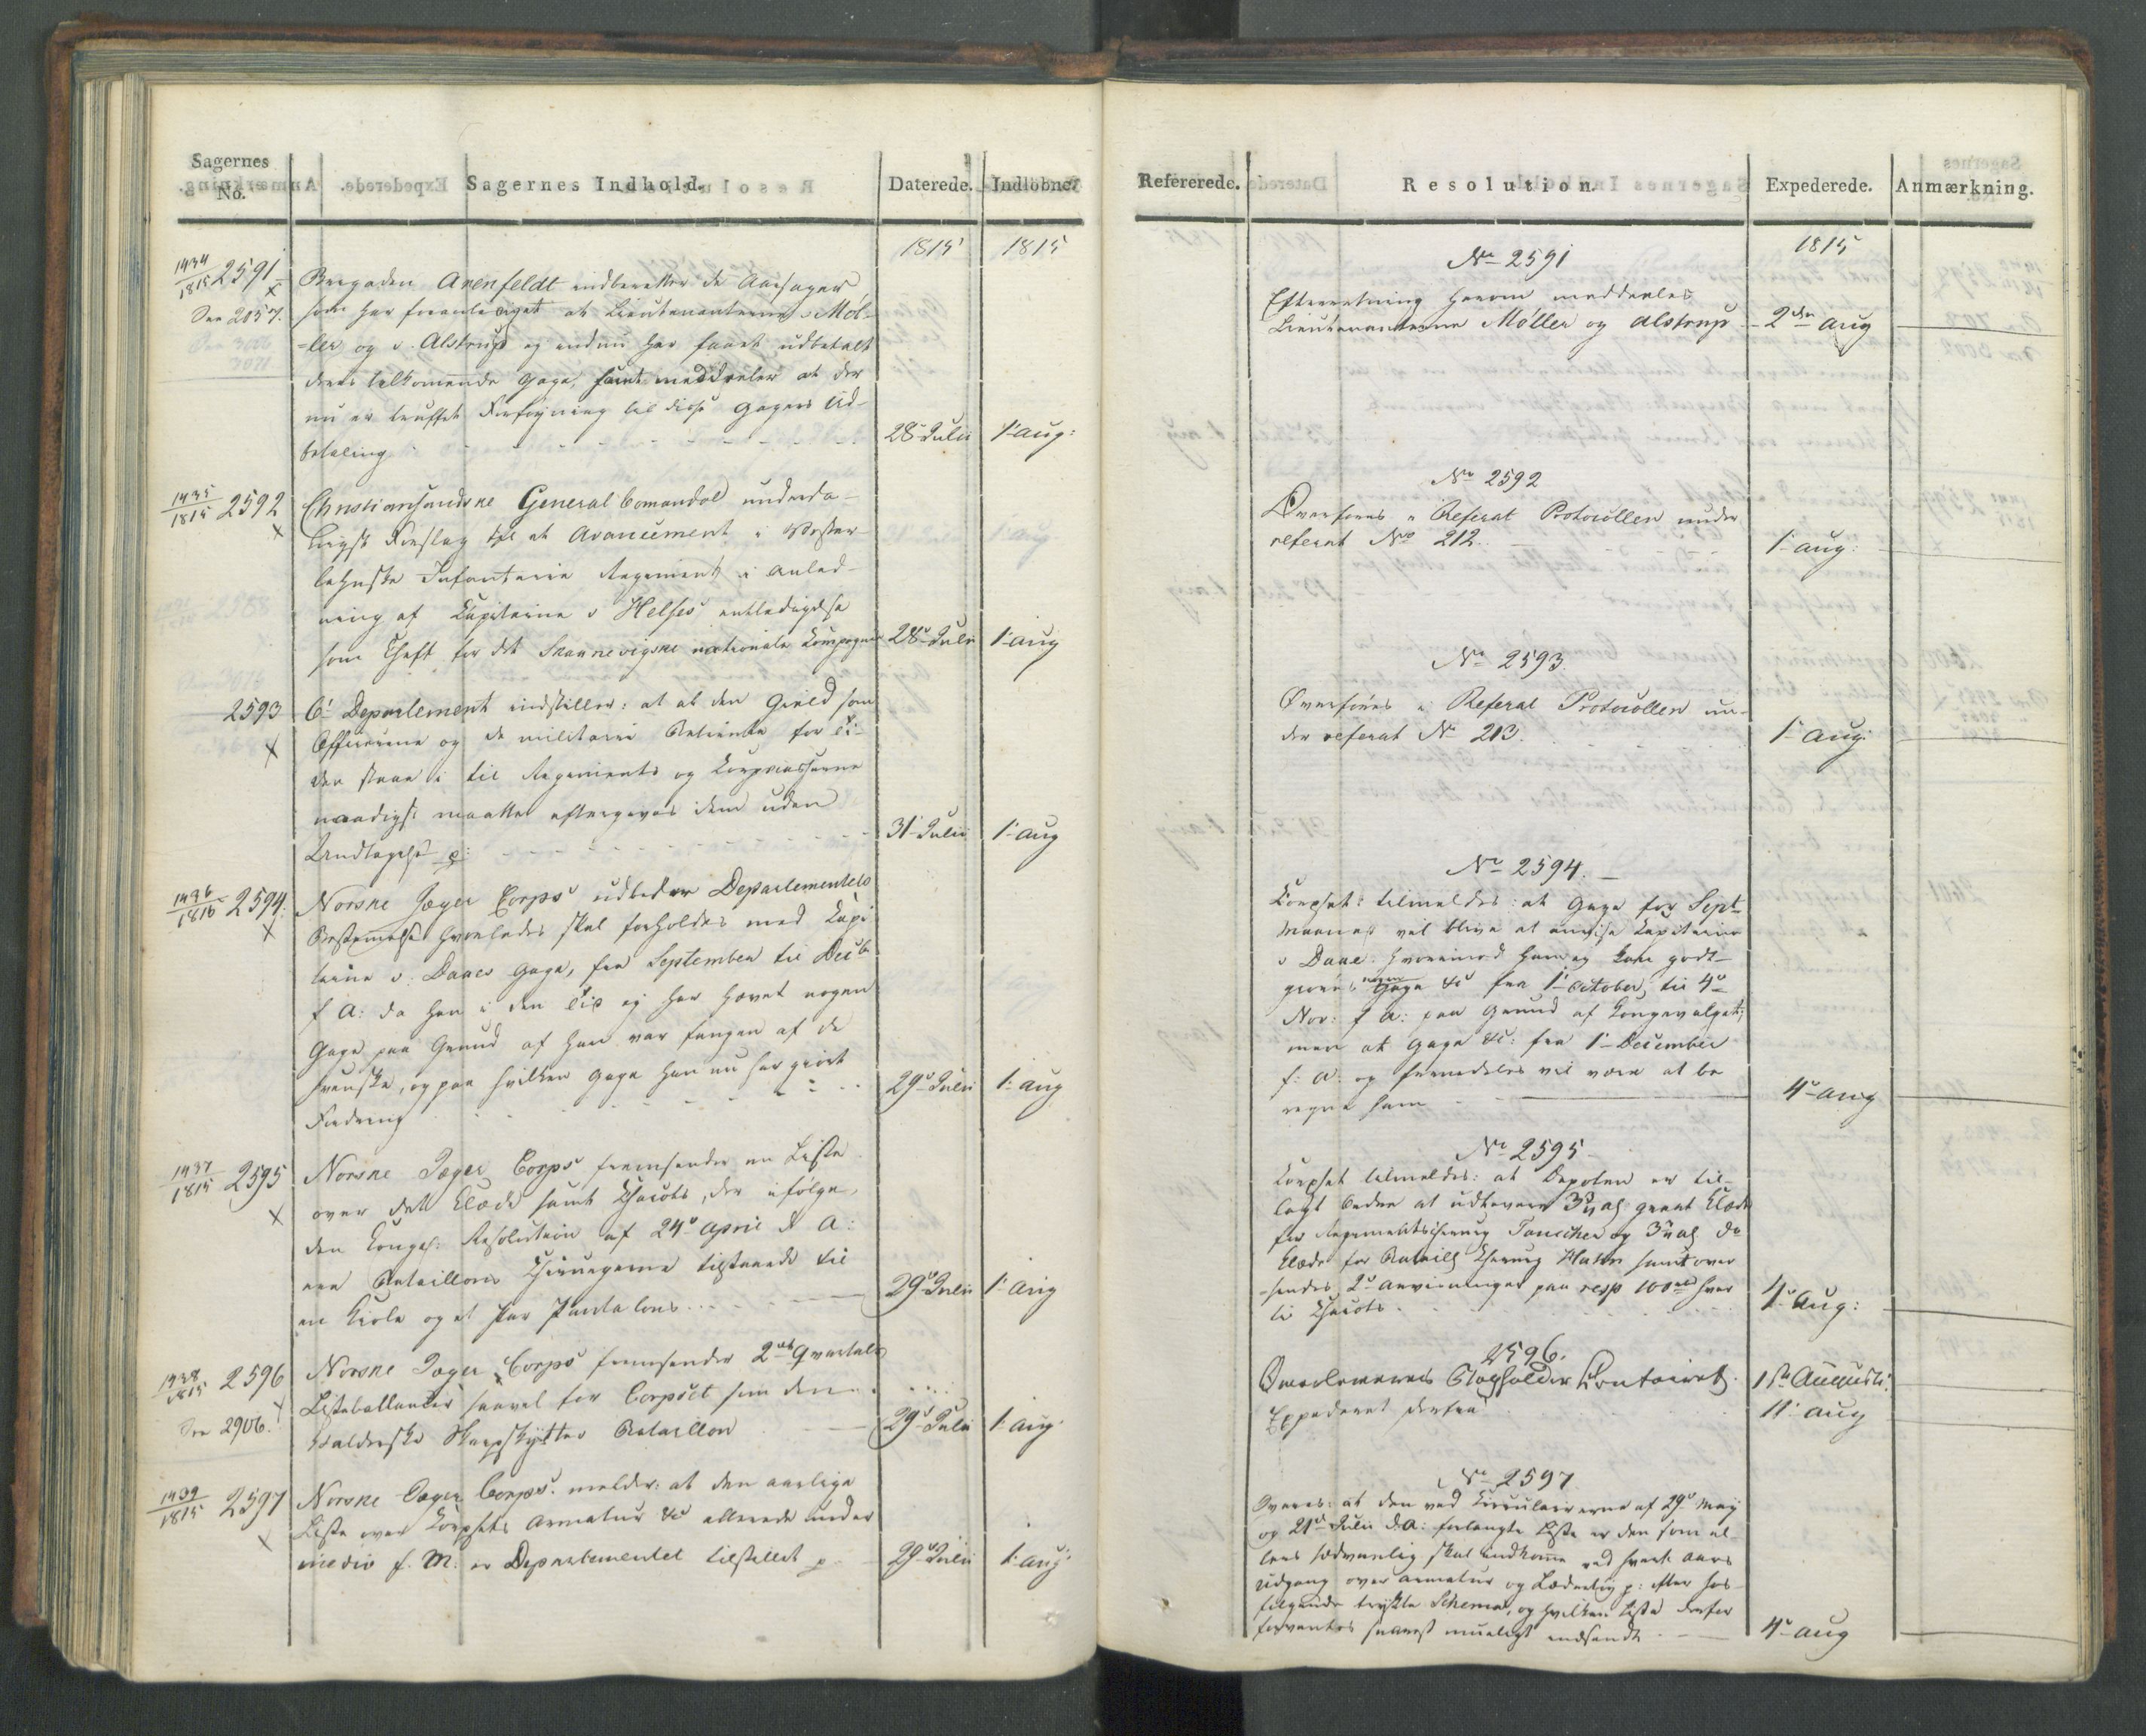 Sagernes
No.
Sagernes Indhold.
Daterede.
Indlöbne.
1815
1815
1434
1815
2591
See 2057.
Brigaden Arenfeldt indberetter de Aarsager
som har foranlediget at Lieutenanterne v Møl-
=ler og v. Alstrup ej endnu har faaet udbetalt
deres tilkommende Gage, samt meddeeler at der
nu er truffet Forføyning til disse Gagers Ud-
betaling
28 Julii
1 Aug:
1435
1815
2592
Christiansandske General Comando underda-
nigst Forslag til et Avancement i Wester-
lehnske Infanterie Regiment i Anled-
ning af Capitaine v Helses entledigelse
som Chef for det Skannevigske nationale Compagnie
28 Julii
1 Aug
2593
6 Departement indstiller: at al den Gield som
Officererne og de militaire Betiente for Ti-
den staae i til Regiments og Corpscasserne
naadigst maatte eftergives dem uden
Undtagelse p:
31 Julii
1 Aug
1436
1815
2594
Norske Jæger Corps udbeder Departementets
Bestemmelse hvorledes skal forholdes med Capi
taine v. Daaes Gage, fra September til Decbr
f A: da han i den Tid ej har hævet nogen
Gage paa Grund af han var fangen af de
svenske, og paa hvilken Gage han nu har giort
Fordring
29 Julii
1 Aug
1437
1815
2595
Norske Jæger Corps fremsender en Liste
over det Klæde samt Chacots, der ifølge
den Kongel: Resolution af 24 April d A:
een Bataillons Chirurgerne tilstaaede til
en Kiole og et Par Pantalons
29 Julii
1 Aug
1438
1815
2596
See 2906.
Norske Jæger Corps fremsender 2det Qvartals
Listeballancer saavel for Corpset som den
Walderske Skarpskytter Bataillon
29 Julii
1 Aug
1439
1815
2597
Norske Jæger Corps melder: at den aarlige
Liste over Corpsets Armatur &c allerede under
medio f. M. er Departementet tilstillet p
29 Julii
1 Aug
Refererede.
Resolution.
Expederede.
Anmærkning.
1815
No 2591
Efterretning herom meddeeles
Lieutenanterne Møller og Alstrup
2den Aug
No 2592
Overføres i Referat Protocollen under
referat No 212.
1 Aug:
No 2593.
Overføres i Referat Protocollen un-
der referat No 213.
1 Aug:
No 2594.
Corpset tilmeldes: at Gage for Septr
Maaned vil blive at anvise Capitaine
v Daae. hvorimod ham ej kan godt-
giøres nogen Gage &c fra 1 October til 4
Nov: f A: paa Grund af Kongevalget;
men at Gage &c: fra 1 December
f: A: og fremdeles vil være at be
regne ham
4 Aug
No 2595
Corpset tilmeldes: at Depoten er til-
lagt Ordre at udlevere 3 al grønt Klæde
for Regimentschirurg Tauscher og 3 al do
Klæde for Bataill Chirurg Hahn samt over
-sendes 2 Anviisninger paa resp 100 hver
til Chacots
4 Aug:
2596.
Overleveres Statholder Contoiret.
Expederet derfra
1ste Augusti.
11 Aug
No 2597
Svares: at den ved Circulairerne af 29 May
og 21 Julii d.A: forlangte Liste er den som el-
lers sædvanlig skal indkomme ved hvert Aars
Udgang over Armatur og Lædertøy p: efter hos-
følgende trykte Schema, og hvilken Liste derfor
forventes snarest mueligt indsendt
4 Aug